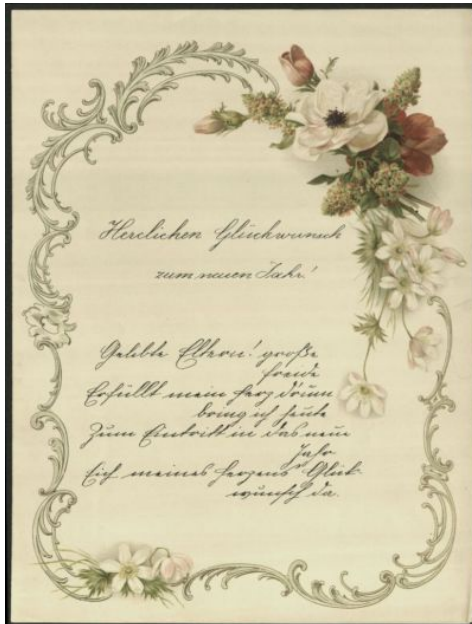 Herzlichen Glückwunsch
zum neuen Jahr!
Geliebte Eltern! große
Freude
Erfüllt mein Herz drum
bring ich heute
Zum Eintritt in das neue
Jahr
Eich meines Herzens Glück-
wunsch da.